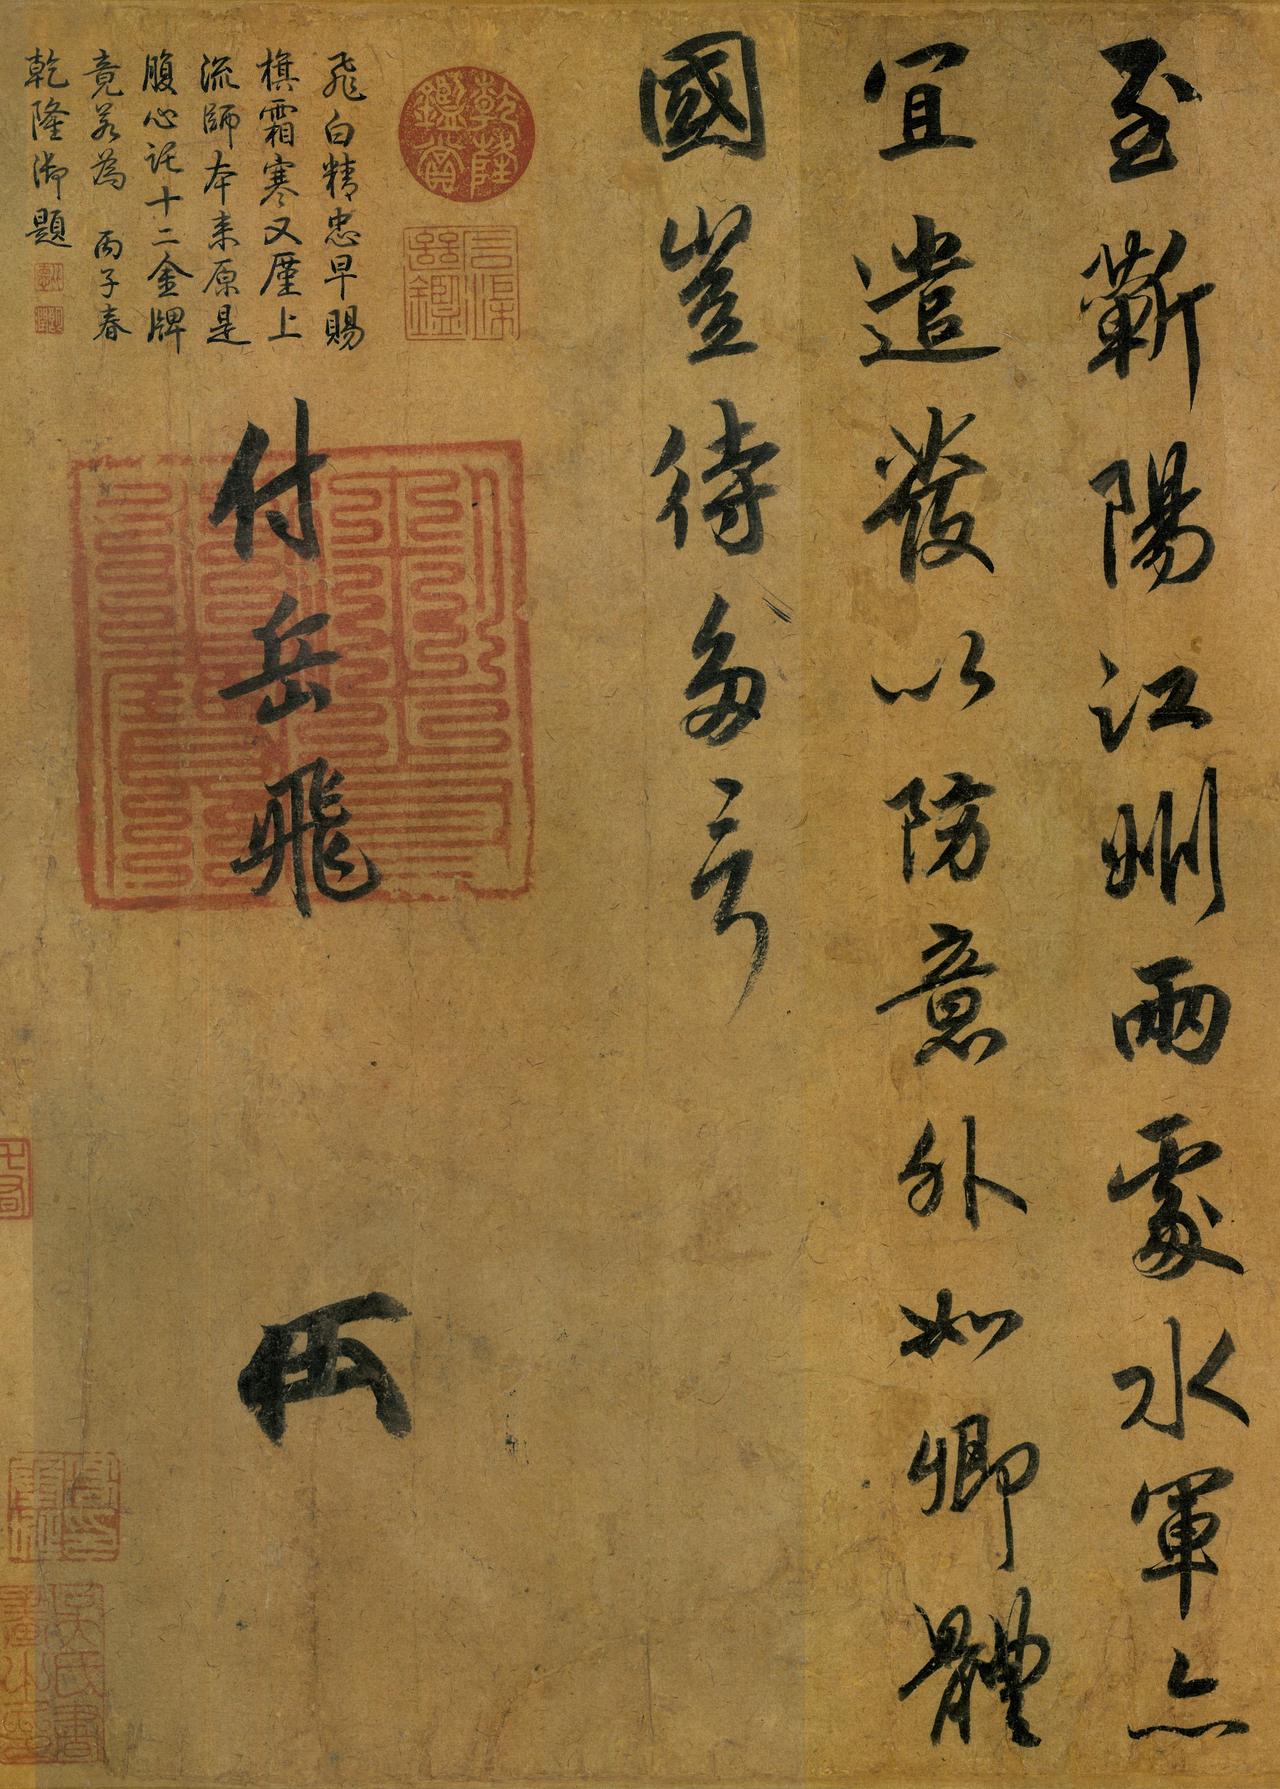 至蘄陽江州兩處水軍亦
宜遣發以防意外如卿體
國豈待多言
付岳飛
飛白精忠早賜
旗霜寒又廑上
流師本來原是
腹心託十二金牌
竟若為 丙子春
乾隆御題
乾隆鑑賞